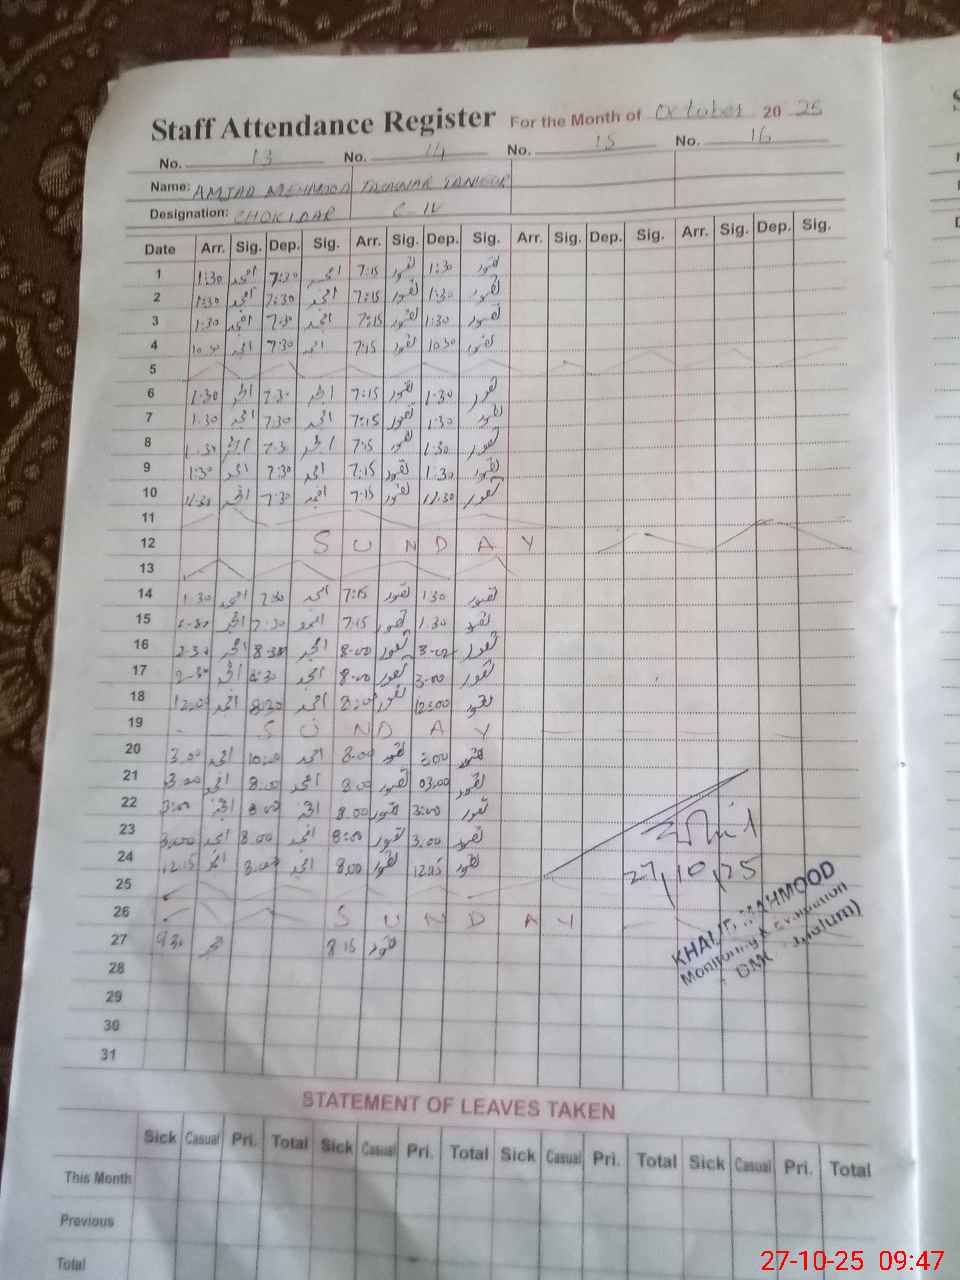 Staff Attendance Register For the Month of October 20 25
No. 13 No. 14 No. 15 No. 16
Name: AMJAD MEHMOOD
Designation: CHOKIDAR C-IV
Date Arr. Sig. Dep. Sig. Arr. Sig. Dep. Sig. Arr. Sig. Dep. Sig. Arr. Sig. Dep. Sig.
1 1:30 امجد 7:30 امجد 7:15 1:30
2 1:30 امجد 7:30 امجد 7:15 1:30
3 1:30 امجد 7:30 امجد 7:15 1:30
4 10:30 امجد 7:30 امجد 7:15 10:30
5
6 1:30 امجد 7:30 امجد 7:15 1:30
7 1:30 امجد 7:30 امجد 7:15 1:30
8 1:30 امجد 7:30 امجد 7:15 1:30
9 1:30 امجد 7:30 امجد 7:15 1:30
10 امجد 7:30 امجد 7:15
11
12 SUNDAY
13
14 1:30 امجد 7:30 امجد 7:15 1:30
15 امجد 7:30 امجد 7:15 1:30
16 2:30 امجد 8:30 امجد 8:00 3:00
17 2:30 امجد 8:30 امجد 8:00 3:00
18 12:00 امجد 8:30 امجد 8:00 12:00
19 SUNDAY
20 3:00 امجد امجد 8:00 3:00
21 3:00 امجد 8:00 امجد 8:00 03:00
22 3:00 امجد 8:00 امجد 8:00 3:00
23 3:00 امجد 8:00 امجد 8:00 3:00
24 12:15 امجد 8:00 امجد 8:00
25
26 SUNDAY
27 9:30 8:15
27,10,25
28
29
30
31
KHALID MAHMOOD
Monitoring & Evaluation
STATEMENT OF LEAVES TAKEN
Sick Casual Pri. Total Sick Casual Pri. Total Sick Casual Pri. Total Sick Casual Pri. Total
This Month
Previous
Total
27-10-25 09:47